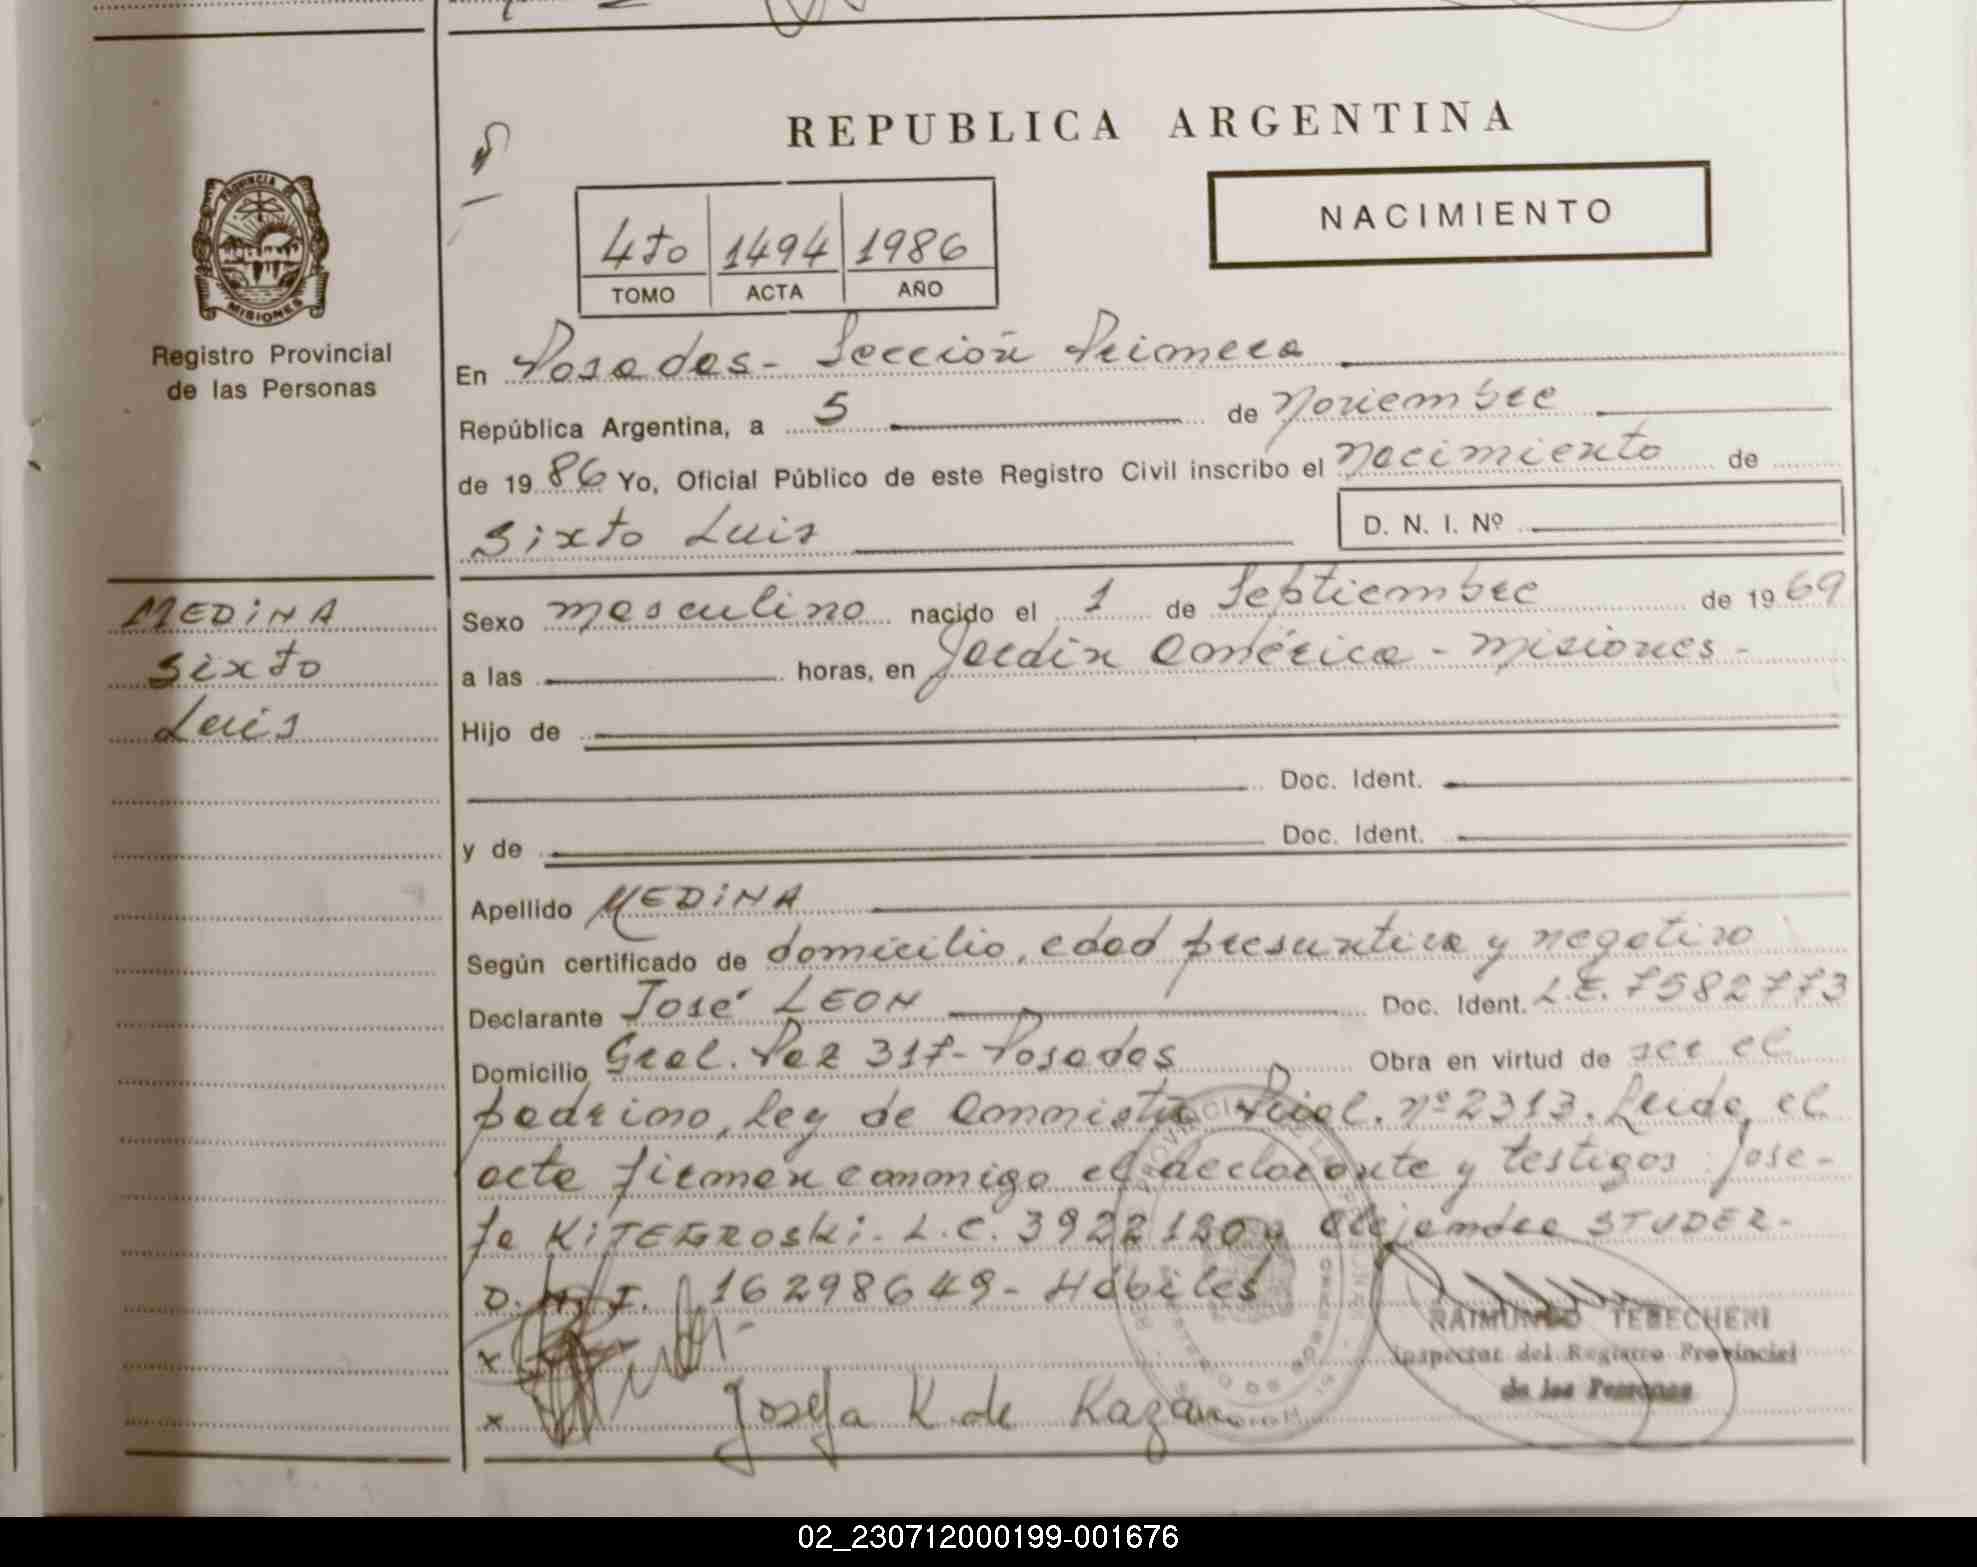 REPUBLICA ARGENTINA
NACIMIENTO
4to 1494 1986
TOMO ACTA AÑO
PROVINCIA DE MISIONES
Registro Provincial
de las Personas
En Posadas - Sección Primera
República Argentina, a 5 de Noviembre
de 1986 Yo, Oficial Público de este Registro Civil inscribo el Nacimiento de
Sixto Luis D. N. I. Nº
MEDINA
Sixto
Luis
Sexo masculino nacido el 1 de Septiembre de 1969
a las horas, en Jardín América - Misiones -
Hijo de
Doc. Ident.
y de Doc. Ident.
Apellido MEDINA
Según certificado de domicilio, edad presuntiva y negativo
Declarante José LEON Doc. Ident. L.E. 7582773
Domicilio Gral. Paz 317 - Posadas Obra en virtud de ser el
padrino, Ley de Amnistía Pcial. nº 2313. Leida el
acta firman conmigo el declarante y testigos: Jose-
fa L.C. 3922180 y Alejandro STUDER -
D.N.I. 16298649 - Hábiles
x
x Josefa K. de Kazan
RAIMUNDO TEBECHERI
Inspector del Registro Provincial
de las Personas
02_230712000199-001676